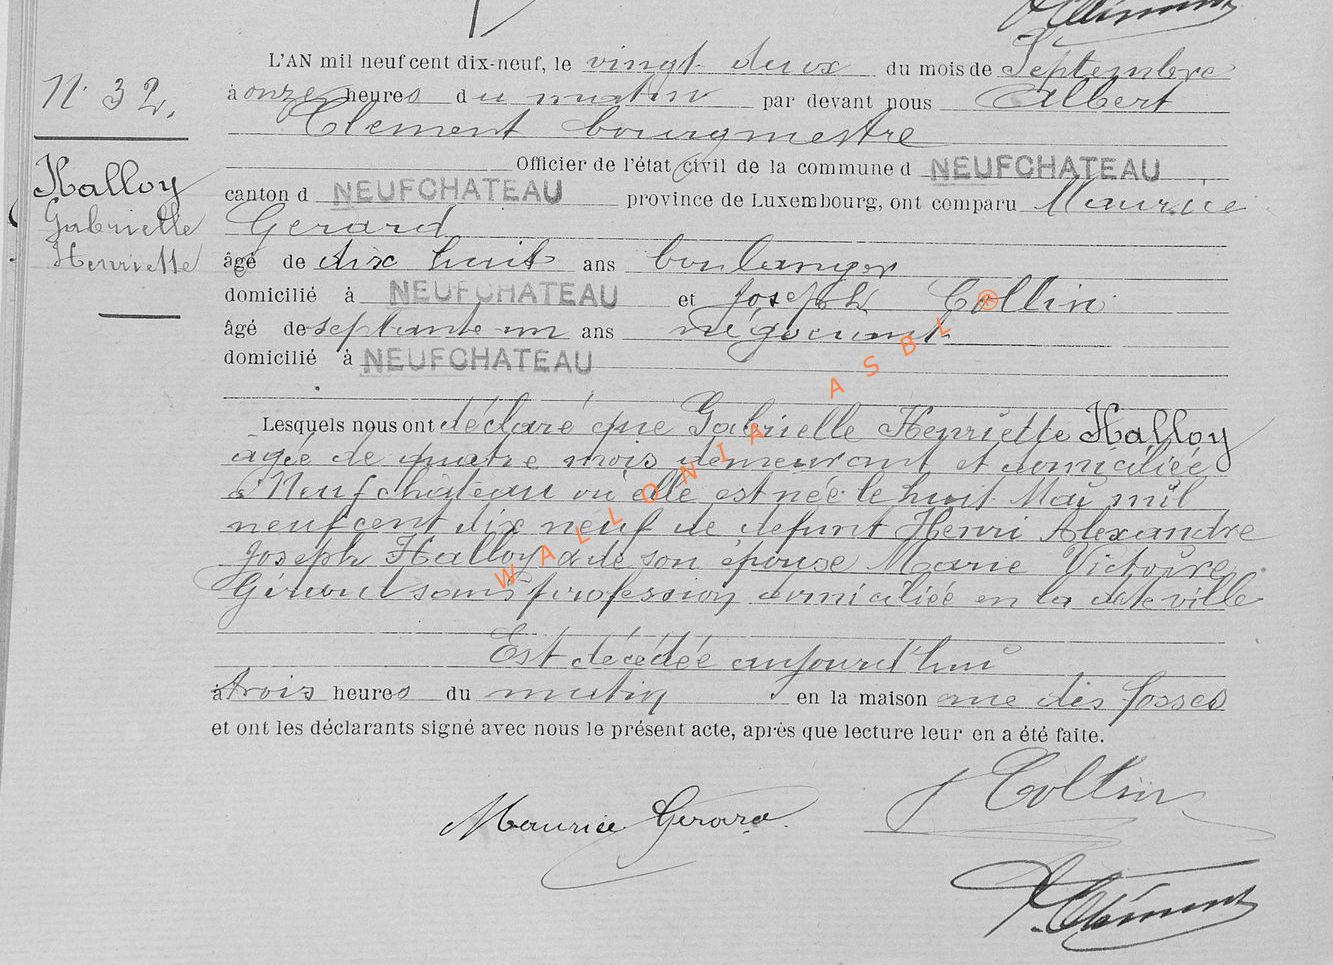 A. Clément
L'AN mil neuf cent dix-neuf, le vingt deux du mois de Septembre
N° 32.
à onze heures du matin par devant nous Albert
Clement bourgmestre
Officier de l'état civil de la commune d NEUFCHATEAU
Halloy
Gabrielle
Henriette
canton d NEUFCHATEAU province de Luxembourg, ont comparu Maurice
Gerard
âgé de dix huit ans boulanger
domicilié à NEUFCHATEAU et Joseph Collin
âgé de septante un ans négociant
domicilié à NEUFCHATEAU
Lesquels nous ont déclaré que Gabrielle Henriette Halloy
agée de quatre mois demeurant et domiciliée
à Neufchâteau où elle est née le huit Mai mil
neuf cent dix neuf de défunt Henri Alexandre
Joseph Halloy & de son épouse Marie Victoire
Gérard sans profession domiciliée en la dite ville
Est décédée aujourd'hui
à trois heures du matin en la maison rue des fosses
et ont les déclarants signé avec nous le présent acte, après que lecture leur en a été faite.
J Collin
Maurice Gerard
A. Clément
WALLONIA ASBL ®